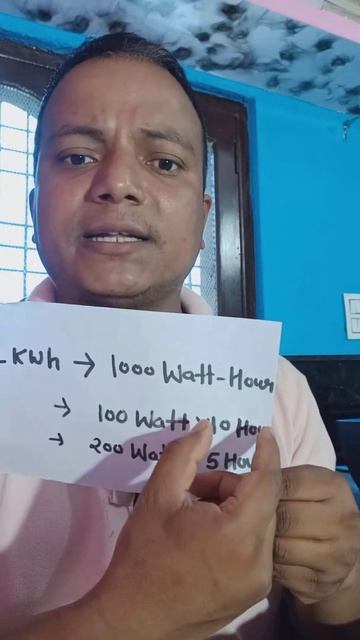 KWh → 1000 Watt-Hour
→ 100 Watt 10 Hou
→ 200 Wat 5 Hou